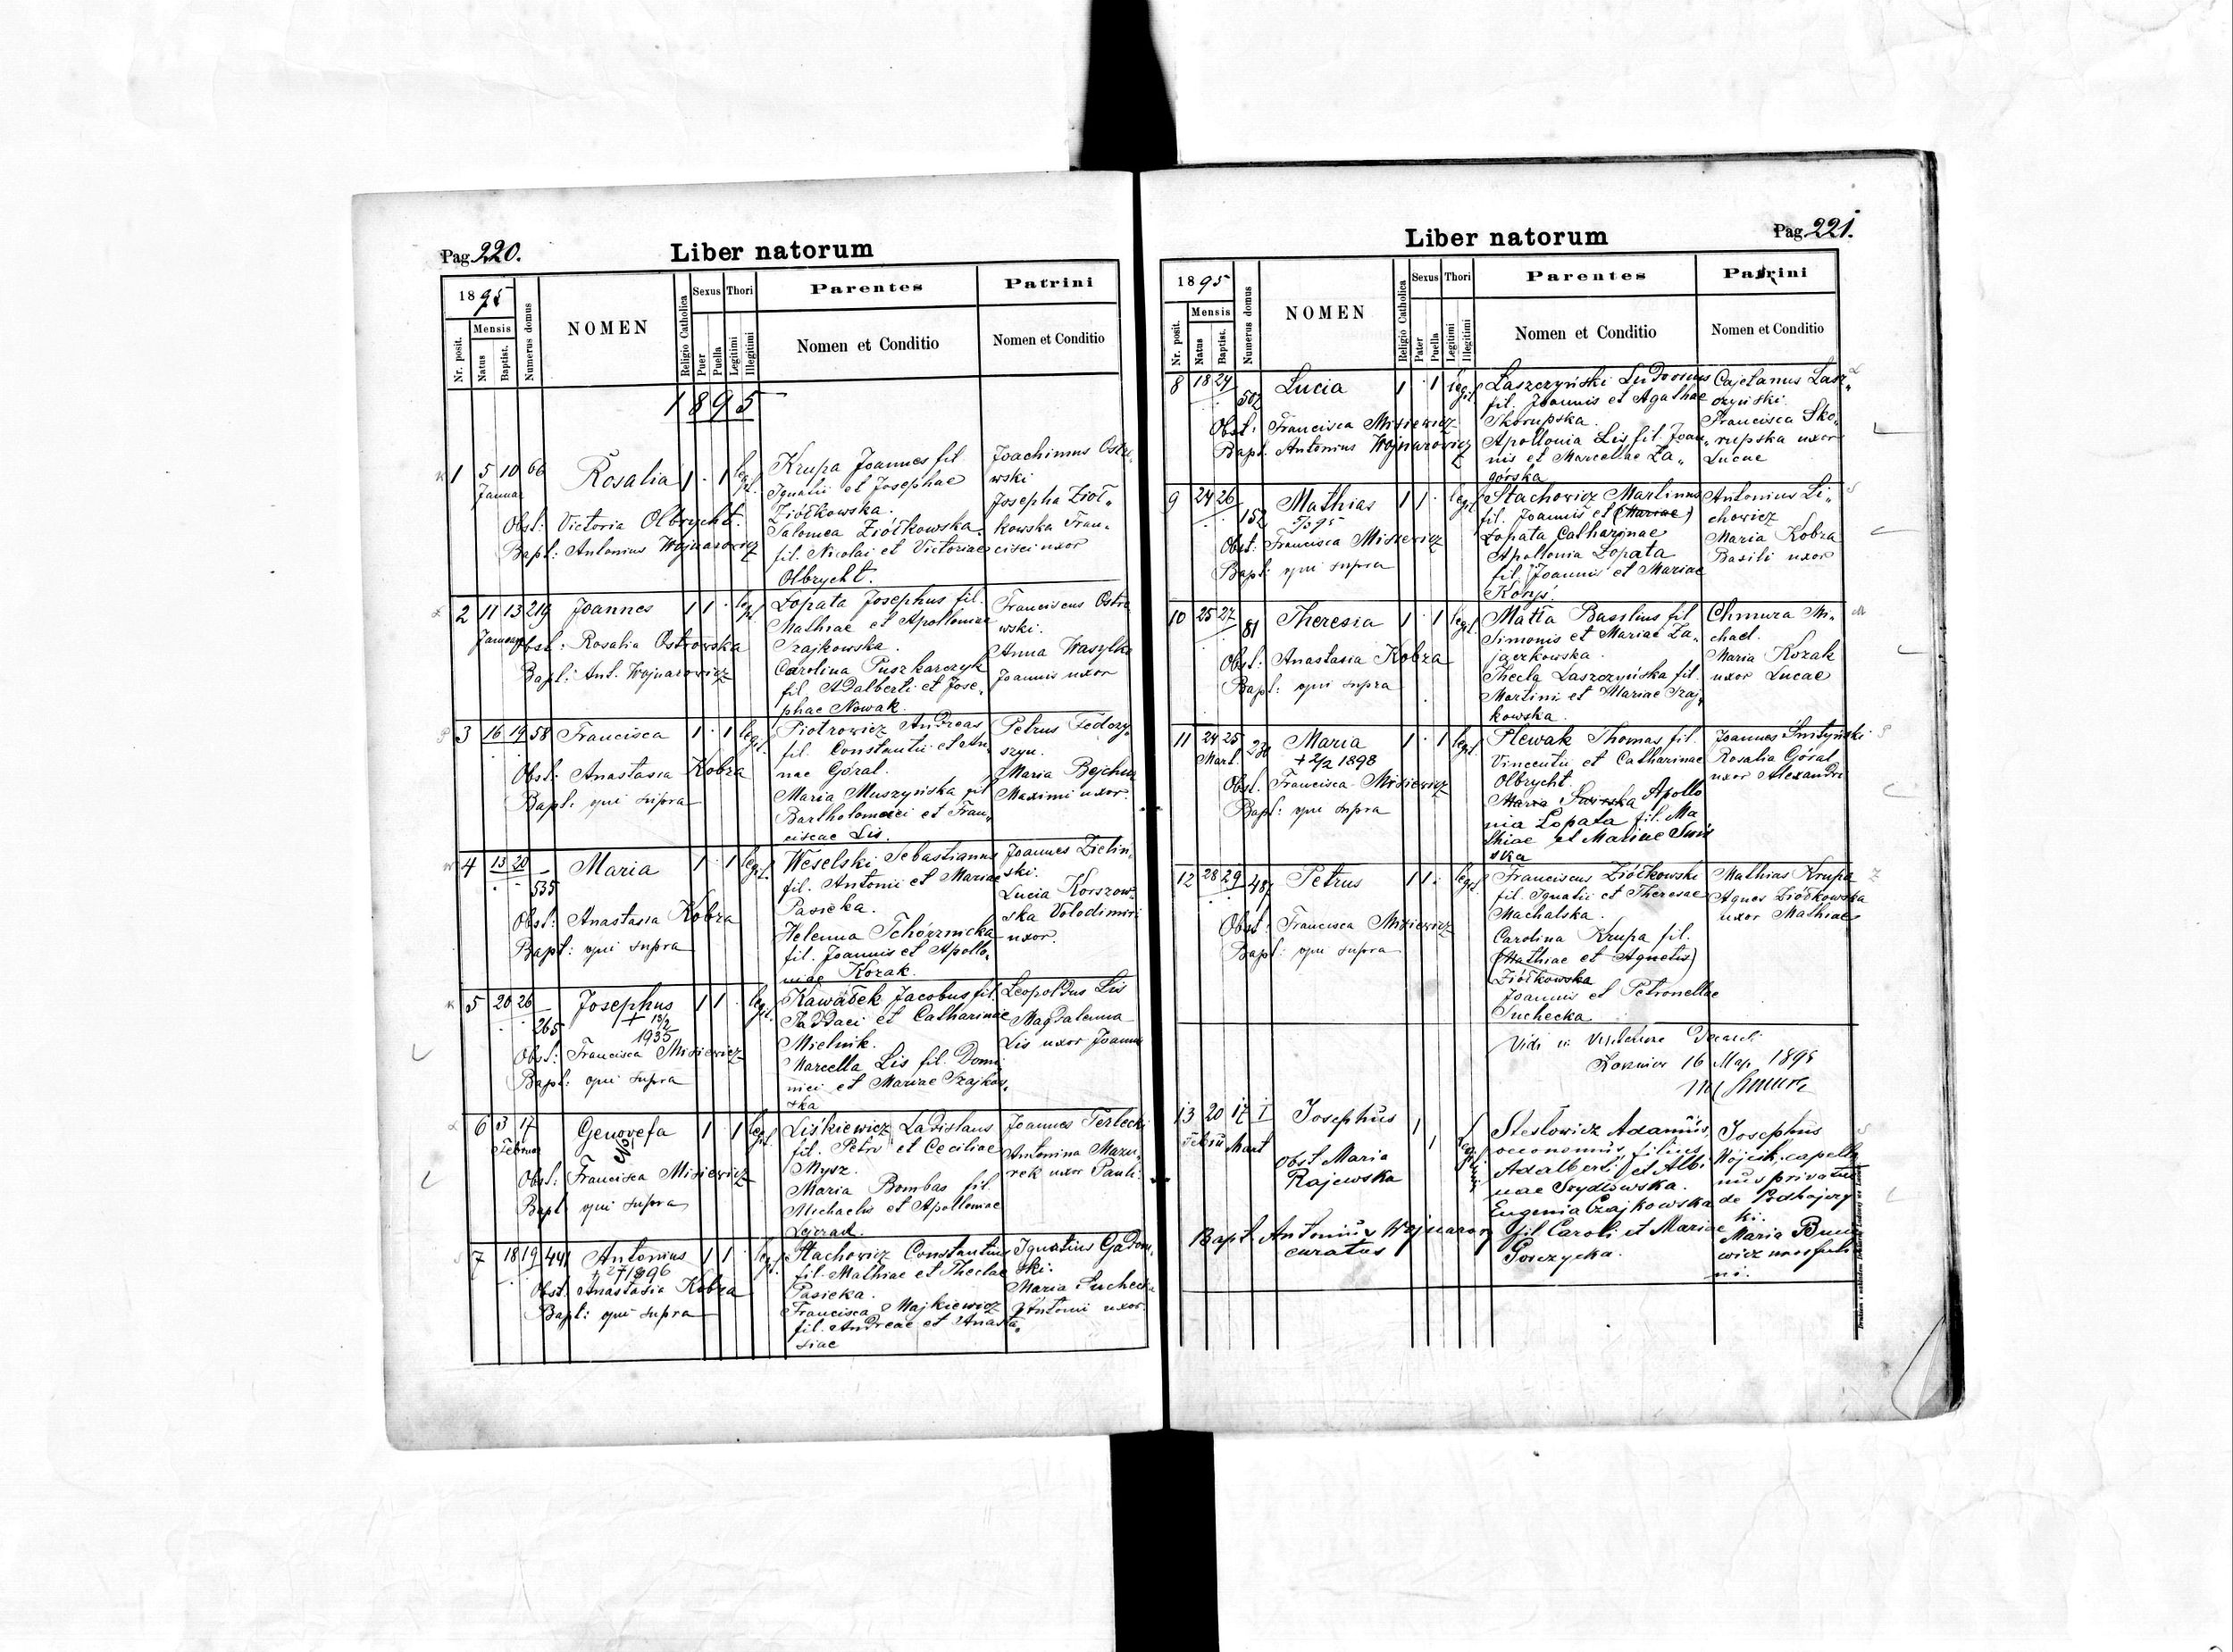 Pag 220.
Liber natorum
1895
Nr. posit.
Mensis
Natus
Baptist.
Numerus domus
NOMEN
Religio Catholica
Sexus
Puer
Puella
Thori
Legitimi
Illegitimi
Parentes
Nomen et Conditio
Patrini
Nomen et Conditio
1895
1 5 10 66 Rosalia 1 · 1 legit.
Januar
Obst: Victoria Olbrycht.
Bapt: Antonius Wojnarowicz
Krupa Joannes fil
Ignatii et Josephae
Ziółkowska.
Salomea Ziółkowska
fil. Nicolai et Victoriae
Olbrycht.
Joachimus Ostro„
wski
Josepha Zioł„
kowska Fran„
cisci uxor
2 11 13 219 Joannes 1 1 · legit.
Januar
Obst: Rosalia Ostrowska
Bapt: Ant. Wojnarowicz
Łopata Josephus fil.
Mathiae et Apolloniae
Szajkowska.
Carolina Puszkarczyk
fil. Adalberti et Jose„
phae Nowak.
Franciscus Ostro
wski.
Anna Wasylka
Joannis uxor
3 16 19 58 Francisca 1 · 1 legit.
Obst: Anastasia Kobza
Bapt: qui supra
Piotrowicz Andreas
fil. Constantii et An
nae Góral.
Maria Muszyńska fil
Bartholomaei et Fran„
ciscae Lis.
Petrus Fedory„
szyn.
Maria
Maximi uxor.
4 13 20 535 Maria 1 · 1 legit.
Obst: Anastasia Kobza
Bapt: qui supra
Weselski Sebastianus
fil. Antonii et Mariae
Pasieka.
Helenna Tchórznicka
fil. Joannis et Apollo„
niae Kozak.
Joannes Zielin„
ski.
Lucia Korszow„
ska Volodimiri
uxor.
5 20 26 265 Josephus 1 1 · legit.
+ 13/2
1935
Obst: Francisca Misiewicz
Bapt: qui supra
Kawałek Jacobus fil.
Taddaei et Catharinae
Mielnik.
Marcella Lis fil. Domi
nici et Mariae Szajkow„
ska
Leopoldus Lis
Magdalenna
Lis uxor Joannis
6 3 17 Genovefa 1 · 1 legit.
Februar
Obst: Francisca Misiewicz
Bapt qui supra
Liśkiewicz Ladislaus
fil. Petri et Ceciliae
Mysz.
Maria Bombas fil.
Michaelis et Apolloniae
Joannes Terlecki
Antonina Mazu„
rek uxor Pauli.
7 18 19 441 Antonius 1 1 · legit.
1896
Obst. Anastasia Kobza
Bapt: qui supra
Stachowicz Constantinus
fil. Mathiae et Theclae
Pasieka.
Francisca Majkiewicz
fil. Andreae et Anasta„
siae
Ignatius Gadom„
ski.
Maria Suchecka
Antoni uxor.
Pag 221.
Liber natorum
1895
Nr. posit.
Mensis
Natus
Baptist.
Numerus domus
NOMEN
Religio Catholica
Sexus
Pater
Puella
Thori
Legitimi
Illegitimi
Parentes
Nomen et Conditio
Patrini
Nomen et Conditio
8 18 24 502 Lucia 1 · 1 legit.
Obst: Francisca Misiewicz
Bapt. Antonius Wojnarowicz
Laszczyński Ludovicus
fil. Joannis et Agathae
Skorupska.
Apollonia Lis fil. Joan„
nis et Marcellae Za„
górska
Cajetanus Lasz„
czyński.
Francisca Sko„
rupska uxor
Lucae
9 24 26 152 Mathias 1 1 · legit.
Obst: Francisca Misiewicz
Bapt: qui supra
Stachowicz Martinus
fil. Joannis et (Mariae)
Łopata Catharinae
Apollonia Łopata
fil. Joannis et Mariae
Antonius Li„
chowicz
Maria Kobza
Basili uxor
10 25 27 81 Theresia 1 · 1 legit.
Obst: Anastasia Kobza
Bapt: qui supra
Matta Basilius fil
Simonis et Mariae Za„
jączkowska.
Thecla Laszczyńska fil.
Martini et Mariae Szaj„
kowska.
Chmura Mi„
chael.
Maria Kozak
uxor Lucae
11 24 25 230 Maria 1 · 1 legit
Mart.
+ 2/2 1898
Obst. Francisca Misiewicz
Bapt: qui supra
Plewak Thomas fil.
Vincentii et Catharinae
Olbrycht.
Maria Świrska Apollo
nia Łopata fil. Ma
thiae et Mariae Świr
ska
Joannes Smityński
Rosalia Góral
uxor Alexandri
12 28 29 487 Petrus 1 1 · legit.
Obst: Francisca Misiewicz
Bapt: qui supra
Franciscus Ziółkowski
fil. Ignatii et Theresae
Machalska.
Carolina Krupa fil.
(Mathiae et Agnetis)
Ziółkowska
Joannis et Petronellae
Suchecka.
Mathias Krupa
Agnes Ziółkowska
uxor Mathiae
Vidi in
16 Maj. 1895
13 20 17 I Josephus 1 1 Legitimi
Febru Mart
Obst Maria
Rajewska
Bapt Antonius Wojnarow
curatus
Stesłowicz Adamus,
oeconomus, filius
Adalberti et Albi
nae Szydłowska.
Eugenia Czajkowska
fil Caroli et Mariae
Gorczycka.
Josephus
Wójcik, capella
nus privatus
de Podhajczy
ki.
Maria